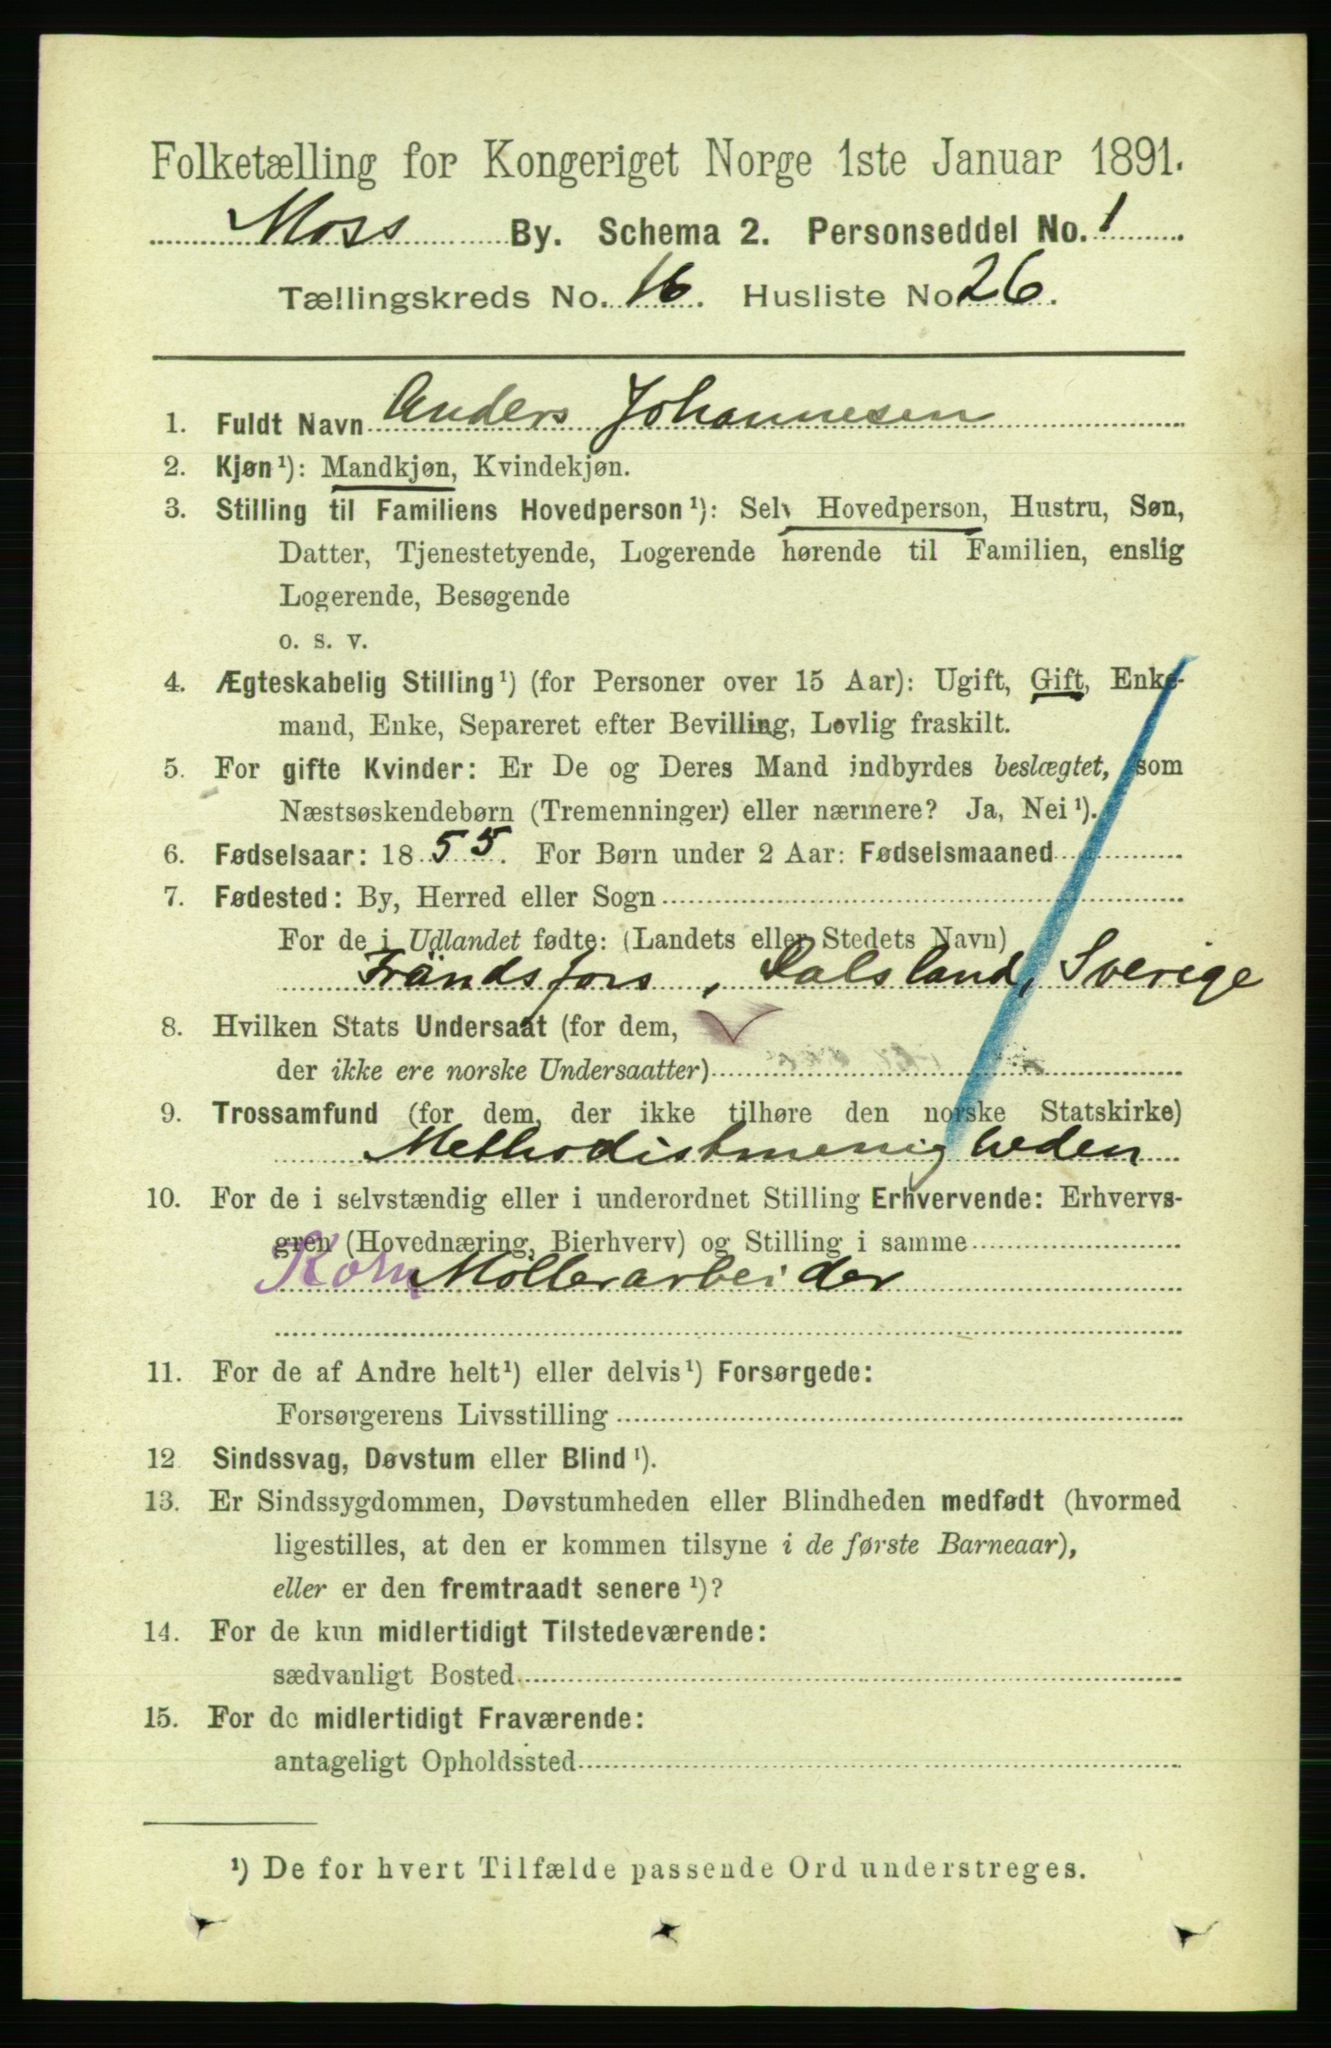 Folketælling for Kongeriget Norge 1ste Januar 1891.
Moss By. Schema 2. Personseddel No. 1
Tællingskreds No. 16. Husliste No 26.
1. Fuldt Navn Anders Johannesen
2. Kjøn¹): Mandkjøn, Kvindekjøn.
3. Stilling til Familiens Hovedperson¹): Selv Hovedperson, Hustru, Søn,
Datter, Tjenestetyende, Logerende hørende til Familien, enslig
Logerende, Besøgende
o. s. v.
4. Ægteskabelig Stilling¹) (for Personer over 15 Aar): Ugift, Gift, Enke-
mand, Enke, Separeret efter Bevilling, Lovlig fraskilt.
5. For gifte Kvinder: Er De og Deres Mand indbyrdes beslægtet, som
Næstsøskendebørn (Tremenninger) eller nærmere? Ja, Nei¹).
6. Fødselsaar: 1855. For Børn under 2 Aar: Fødselsmaaned
7. Fødested: By, Herred eller Sogn
For de i Udlandet fødte: (Landets eller Stedets Navn)
Frändsfors, Dalsland, Sverige
8. Hvilken Stats Undersaat (for dem,
der ikke ere norske Undersaatter)
9. Trossamfund (for dem, der ikke tilhøre den norske Statskirke)
Methodistmenigheden
10. For de i selvstændig eller i underordnet Stilling Erhvervende: Erhvervs-
gren (Hovednæring, Bierhverv) og Stilling i samme
Korn Møllerarbeider
11. For de af Andre helt¹) eller delvis¹) Forsørgede:
Forsørgerens Livsstilling
12 Sindssvag, Døvstum eller Blind¹).
13. Er Sindssygdommen, Døvstumheden eller Blindheden medfødt (hvormed
ligestilles, at den er kommen tilsyne i de første Barneaar),
eller er den fremtraadt senere¹)?
14. For de kun midlertidigt Tilstedeværende:
sædvanligt Bosted
15. For de midlertidigt Fraværende:
antageligt Opholdssted
¹) De for hvert Tilfælde passende Ord understreges.